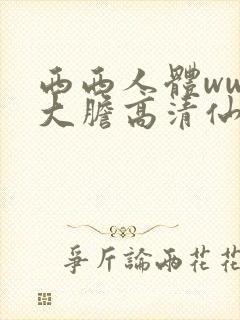 西西人體ww
大膽高清仙
爭斤論兩花花